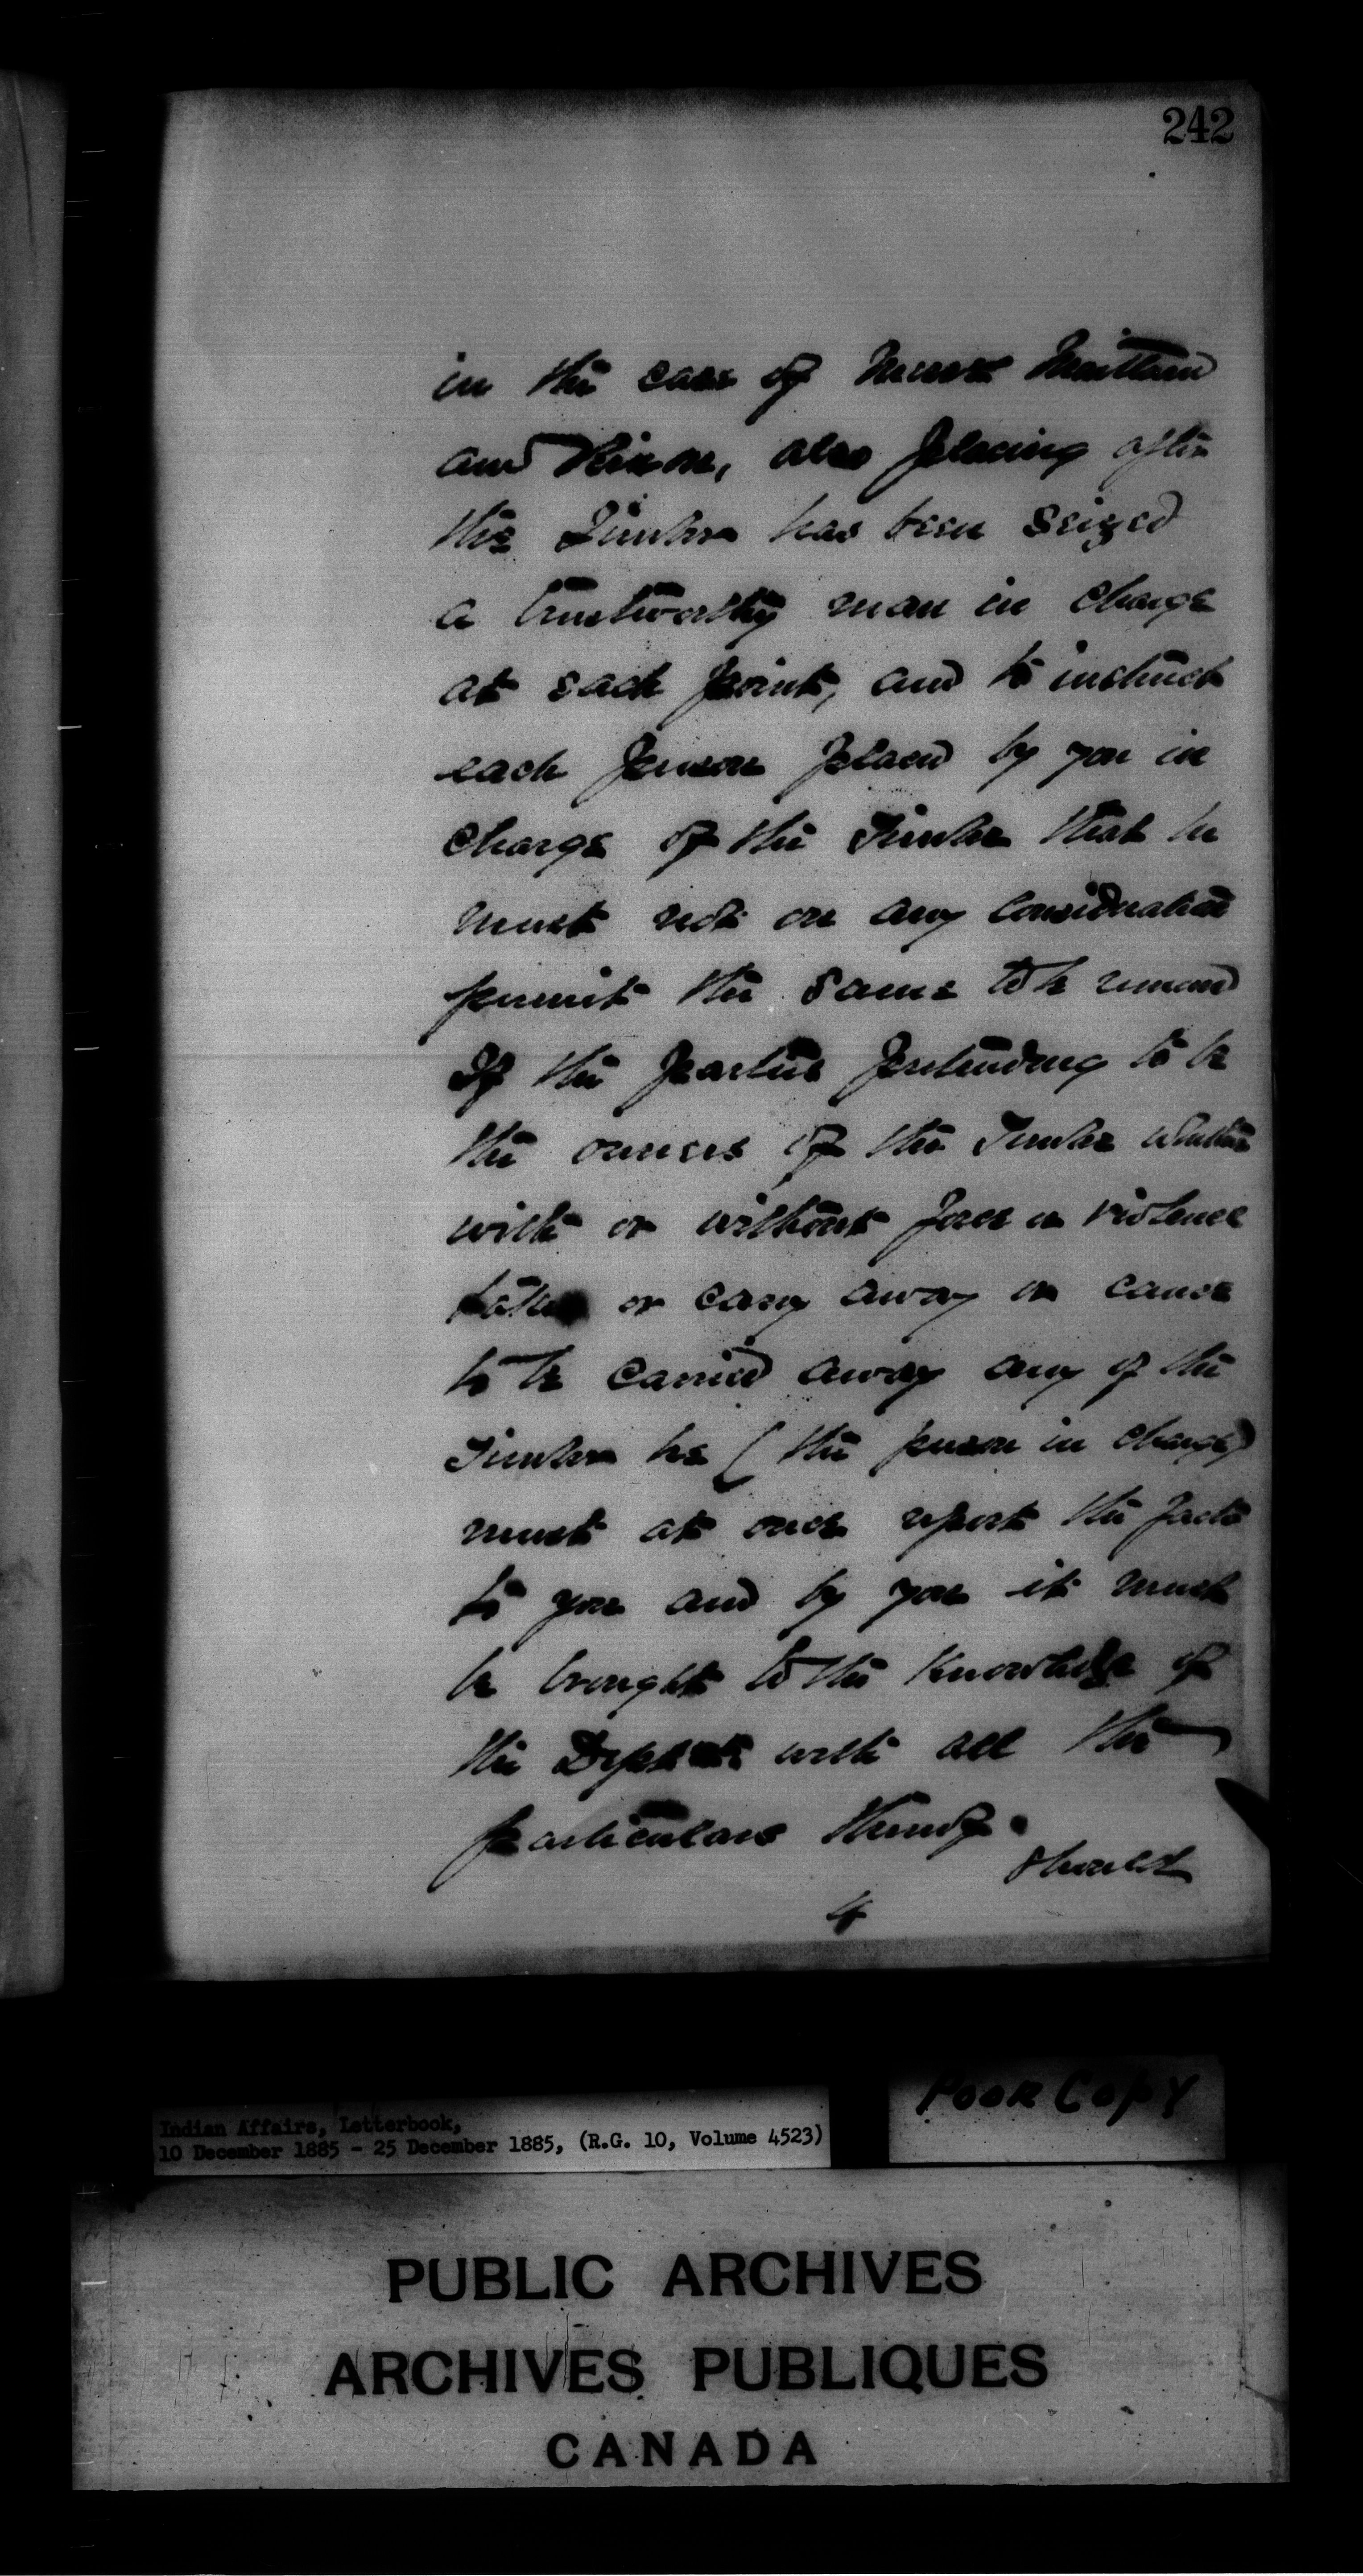 242
in the case of Messrs Maitland
and Rixon, also placing after
the Timber has been seized
a trustworthy man in charge
at each point, and to instruct
each person placed by you in
charge of the Timber that he
must not on any consideration
permit the same to be removed
If the parties pretending to be
the owners of the Timber whether
with or without force or violence
take or carry away or cause
to be carried away any of the
Timber he (the person in charge)
must at once report the facts
to you and by you it must
be brought to the knowledge of
the Dept with all the
particulars thereof.
should
4
POOR COPY
Indian Affairs, Letterbook,
10 December 1885 - 25 December 1885, (R.G. 10, Volume 4523)
PUBLIC ARCHIVES
ARCHIVES PUBLIQUES
CANADA